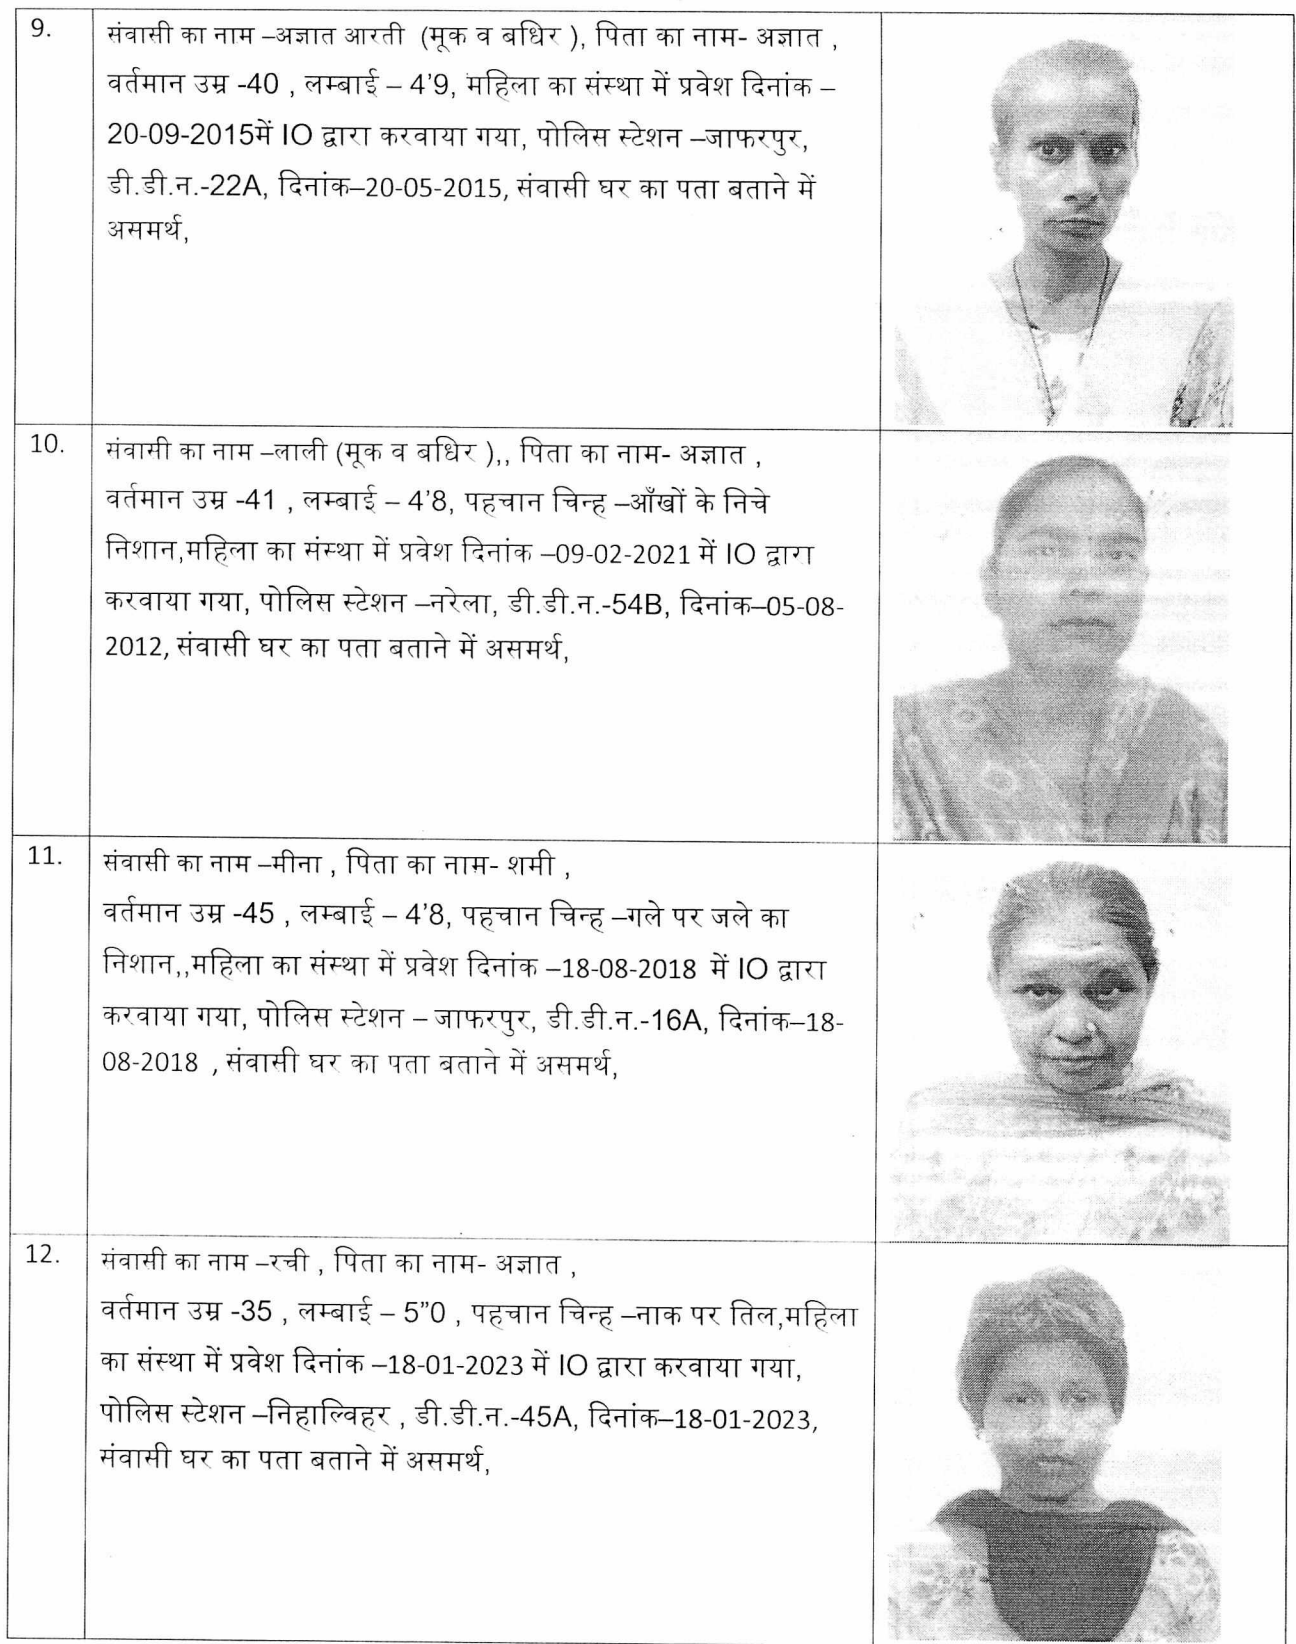 9.
संवासी का नाम –अज्ञात आरती (मूक व बधिर ), पिता का नाम- अज्ञात ,
वर्तमान उम्र -40 , लम्बाई – 4'9, महिला का संस्था में प्रवेश दिनांक –
20-09-2015में IO द्वारा करवाया गया, पोलिस स्टेशन –जाफरपुर,
डी.डी.न.-22A, दिनांक–20-05-2015, संवासी घर का पता बताने में
असमर्थ,
10.
संवासी का नाम –लाली (मूक व बधिर ),, पिता का नाम- अज्ञात ,
वर्तमान उम्र -41 , लम्बाई – 4'8, पहचान चिन्ह –आँखों के निचे
निशान,महिला का संस्था में प्रवेश दिनांक –09-02-2021 में IO द्वारा
करवाया गया, पोलिस स्टेशन –नरेला, डी.डी.न.-54B, दिनांक–05-08-
2012, संवासी घर का पता बताने में असमर्थ,
11.
संवासी का नाम –मीना , पिता का नाम- शमी ,
वर्तमान उम्र -45 , लम्बाई – 4'8, पहचान चिन्ह –गले पर जले का
निशान,,महिला का संस्था में प्रवेश दिनांक –18-08-2018 में IO द्वारा
करवाया गया, पोलिस स्टेशन – जाफरपुर, डी.डी.न.-16A, दिनांक–18-
08-2018 , संवासी घर का पता बताने में असमर्थ,
12.
संवासी का नाम –रची , पिता का नाम- अज्ञात ,
वर्तमान उम्र -35 , लम्बाई – 5"0 , पहचान चिन्ह –नाक पर तिल,महिला
का संस्था में प्रवेश दिनांक –18-01-2023 में IO द्वारा करवाया गया,
पोलिस स्टेशन –निहाल्विहर , डी.डी.न.-45A, दिनांक–18-01-2023,
संवासी घर का पता बताने में असमर्थ,